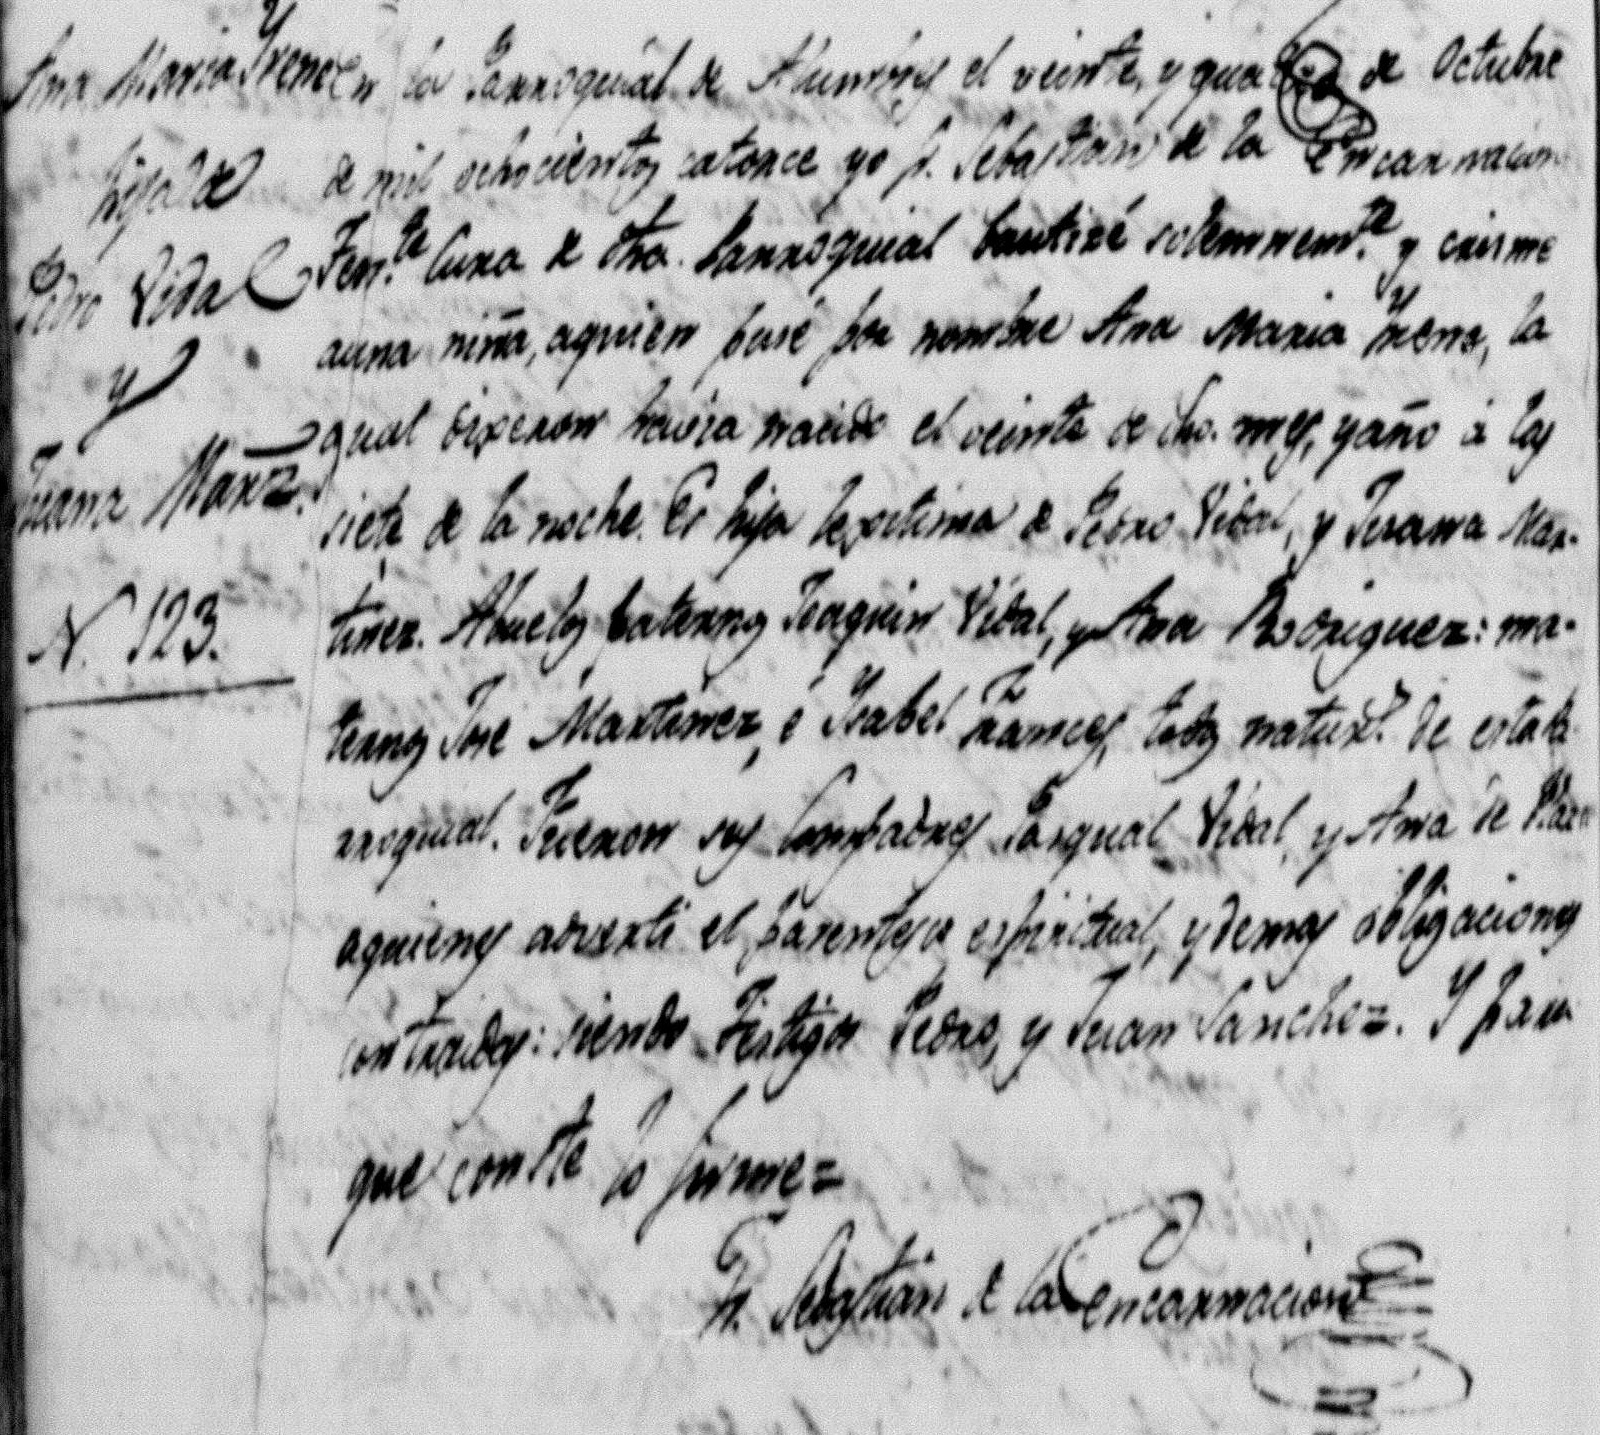 Ana Maria Yrene
hija de
Pedro Vidal
y
Juana Marz.
N. 123.
En la Parroquial de el veinte, y quatro de Octubre
de mil ochocientos catorce yo fr. Sebastian de la Encarnacion
Ten.te Cura de dha. Parroquial bautizé solemnem.te y crisme
auna niña, aquien puse por nombre Ana Maria Yrene, la
qual dixeron havia nacido el veinte de dho. mes, y año á las
siete de la noche. Es hija legitima de Pedro Vidal, y Juana Mar-
tinez. Abuelos paternos Joaquin Vidal, y Ana Rodriguez: ma-
ternos José Martinez, é Ysabel Frances, todos natur.s de esta Pa-
rroquial. Fueron sus Compadres Pasqual Vidal, y Ana de
aquienes adverti el parentesco espiritual, y demas obligaciones
contraidas: siendo Testigos Pedro, y Juan Sanchez. Y para
que conste lo firme=
Fr. Sebastian de la Encarnacion